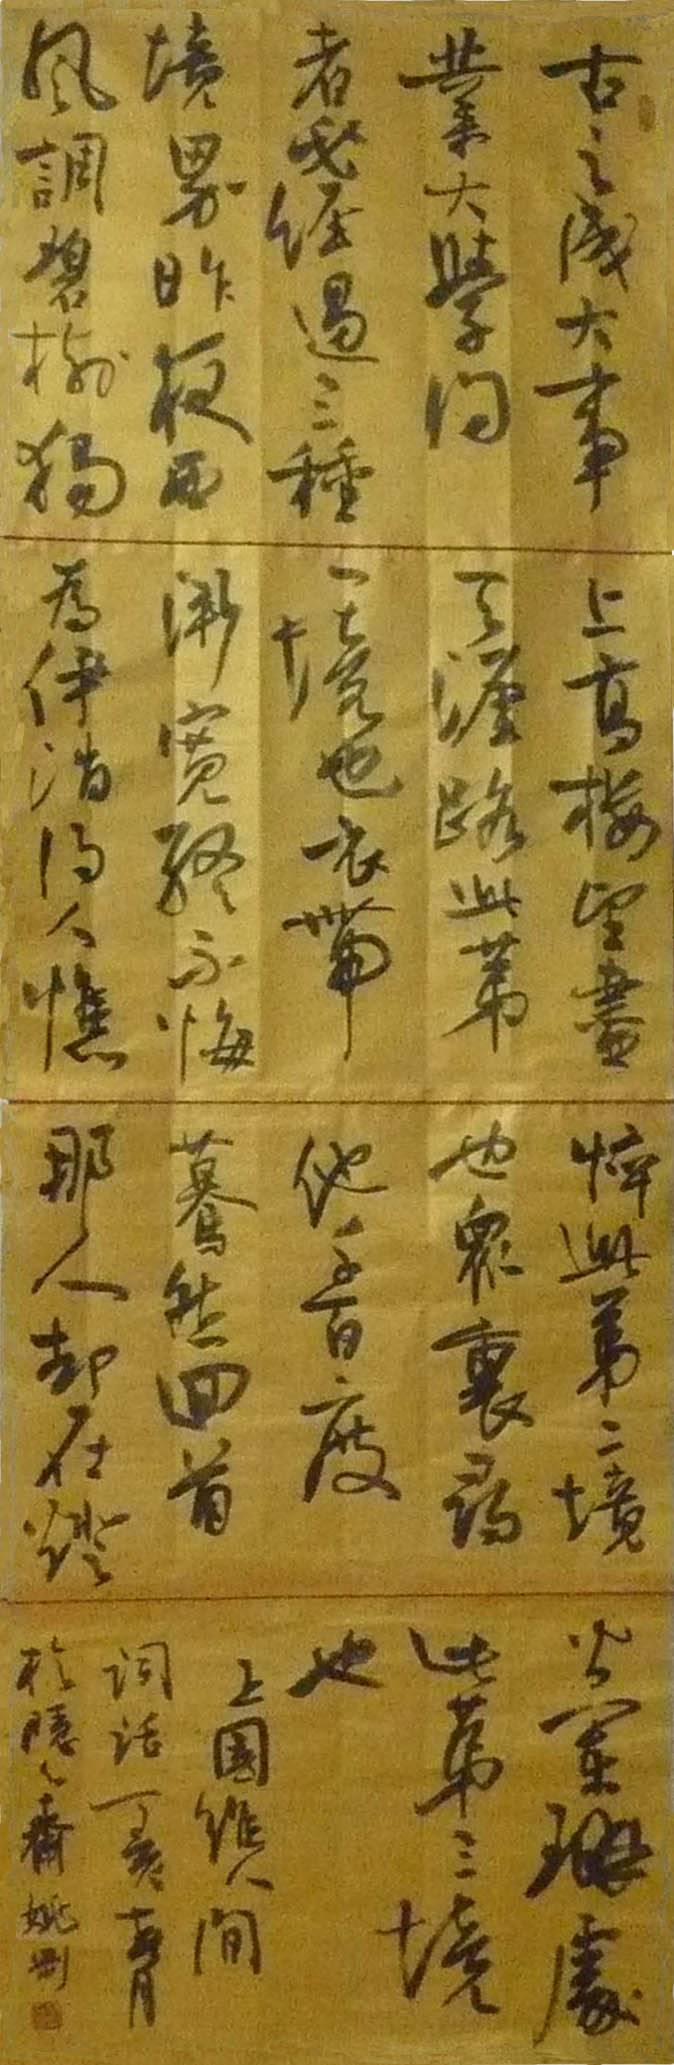 古之成大事
業大學问
者必經過三種
境界昨夜西
風調碧樹獨
上高樓望盡
天涯路此第
一境也衣帶
漸寬終不悔
為伊消得人憔
悴此第二境
也眾裏尋
他千百度
驀然回首
那人却在燈
火闌珊處
此第三境
也
王國維人間
詞話丁亥月
於隱齋姚